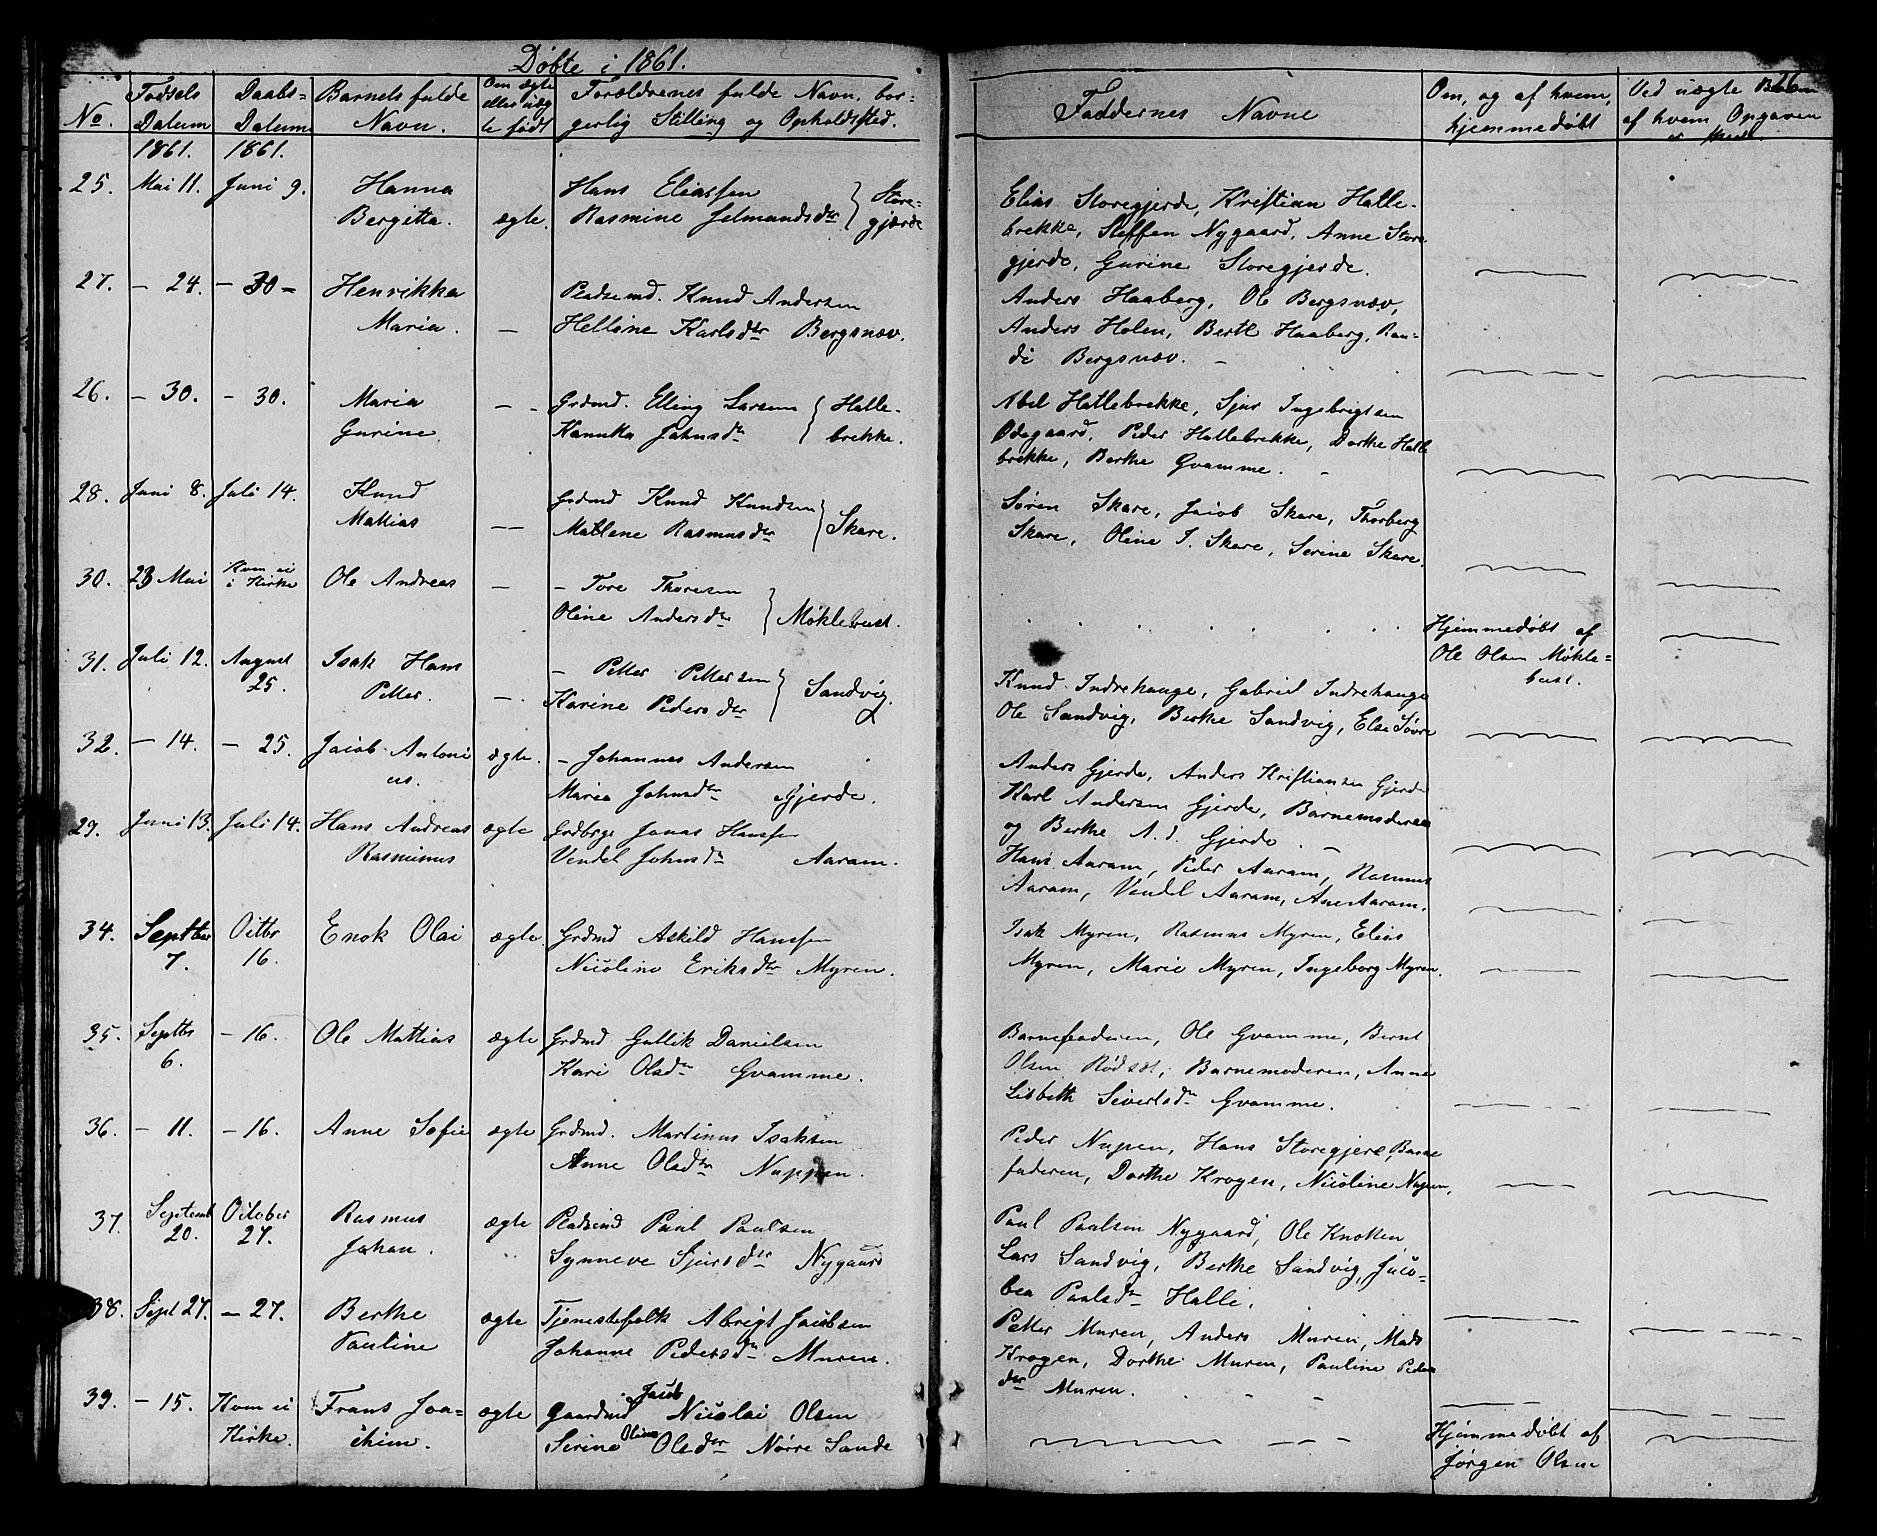 Døbte i 1861.
26
No.
Fødsels Datum
Daabs-Datum
Barnets fulde Navn.
Om ægte eller uæg-te født
Forældrenes fulde Navn, bor-
gerlig Stilling og Opholdssted.
Faddernes Navne
Om, og af hvem, hjemmedøbt
Ved uægte Børn af hvem Opgaven er skeet
1861. 1861.
25. Mai 11. Juni 9. Hanna Hans Eliassen } Store-
Bergitta. ægte. Rasmine Jetmundsdtr gjærde
Elias Storegjerde, Kristian Hatle-
brekke, Steffen Nygaard, Anne Store
gjerde, Gurine Storegjerde.
27. – 24. – 30 – Henrikka Pladsmd. Knud Andersen
Maria. — Helline Karlsdtr Bergsnæv.
Anders Haaberg, Ole Bergsnæv,
Anders Holen, Berte Haaberg, Ran-
di Bergsnæv. –
26. – 30. – 30. Maria – – Grdmd. Elling Larsen } Hatle-
Gurine. Kanuka Johnsdtr brekke.
Abel Hatlebrekke, Sjur Ingebrigtsen
Ødegaard, Peder Hatlebrekke, Dorthe Hatle
brekke, Berthe Gvamme. –
28. Juni 8. Juli 14. Knud Grdmd Knud Knudsen } Skare.
Mathias –– Mallene Rasmusdtr
Søren Skare, Jacob Skare, Thorberg
Skare, Oline J. Skare, Serine Skare.
30. 23 Mai Kom ei i Kirke Ole Andreas — – Tore Thoresen
Oline Andersdtr } Møklebust.
Hjemmedøbt af
Ole Olsen Møkle-
bust.
31. Juli 12. August 25. Isak Hans – Petter Pettersen } Sandvig.
Petter. — Karine Pedersdtr
Knud Indrehauge, Gabriel Indrehauge
Ole Sandvig, Berthe Sandvig, Else Søvre
32. – 14. – 25. Jacob Antoni ægte. – Johannes Andersen
us. Maria Johnsdtr Gjerde.
Anders Gjerde, Anders Kristiansen Gjerde
Karl Andersen Gjerde, Barnemoderen
og Berthe A. d. Gjerde. –
29. Juni 13. Juli 14. Hans Andreas ægte Grdbrgr Jonas Hanssen
Rasmus Vendel Johnsdtr Aaram.
Hans Aaram, Peder Aaram, Rasmus
Aaram, Vendel Aaram, Ane Aaram.
34. Septbr 7. Octbr 16. Enok Olai ægte Grdmd Askild Hanssen
Nicoline Eriksdtr Myren.
Isak Myren, Rasmus Myren, Elias
Myren, Marie Myren, Ingeborg Myren.
35. Septbr 6. – 16. Ole Mathias ægte Grdmd Gullik Danielsen
Kari Olsdtr Gvamme.
Barnefaderen, Ole Gvamme, Bernt
Olsen Rødsæt, Barnemoderen, Anne
Lisbeth Sivertsdtr Gvamme.
36. – 11. – 16. Anne Sofie ægte Grdmd. Martinus Isaksen
Anne Olsdtr Nuppen.
Peder Nupen, Hans Storegjere, Barne
faderen, Dorthe Krogen, Nicoline Nupen.
37. Septemb 20. October 27. Rasmus ægte Pladsmd Paul Paulsen
Johan. Synneve Sjursdtr Nygaard
Paul Paulsen Nygaard, Ole Knotten
Lars Sandvig, Berthe Sandvig, Jaco-
bea Paulsdtr Halle.
38. Sept 27. – 27. Berthe ægte Tjenestefolk Abrigt Jacobsen
Pauline Johanne Pedersdtr Muren.
Petter Muren, Anders Muren, Mads
Krogen, Dorthe Muren, Pauline Peders
dtr Muren.
39. – 15. Kom ei Kirke. Frans Joa- ægte Gaardmd Jacob Nicolai Olsen
chim. Serine Oline Olsdtr Nørre Sande
Hjemmedøbt af
Jørgen Olsen